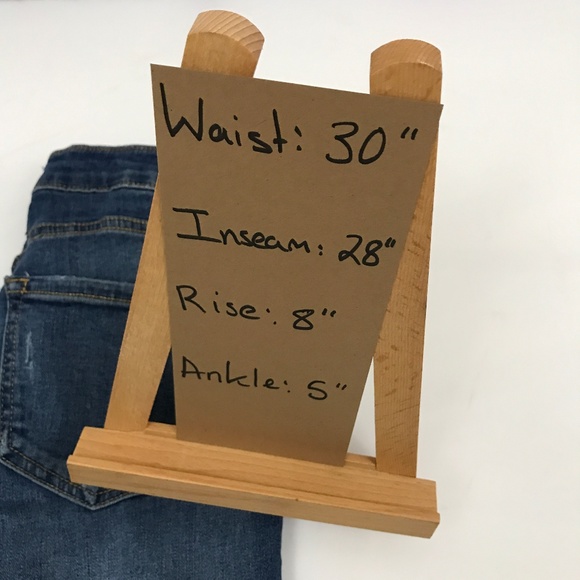 Waist: 30"
Inseam: 28"
Rise: 8"
Ankle: 5"